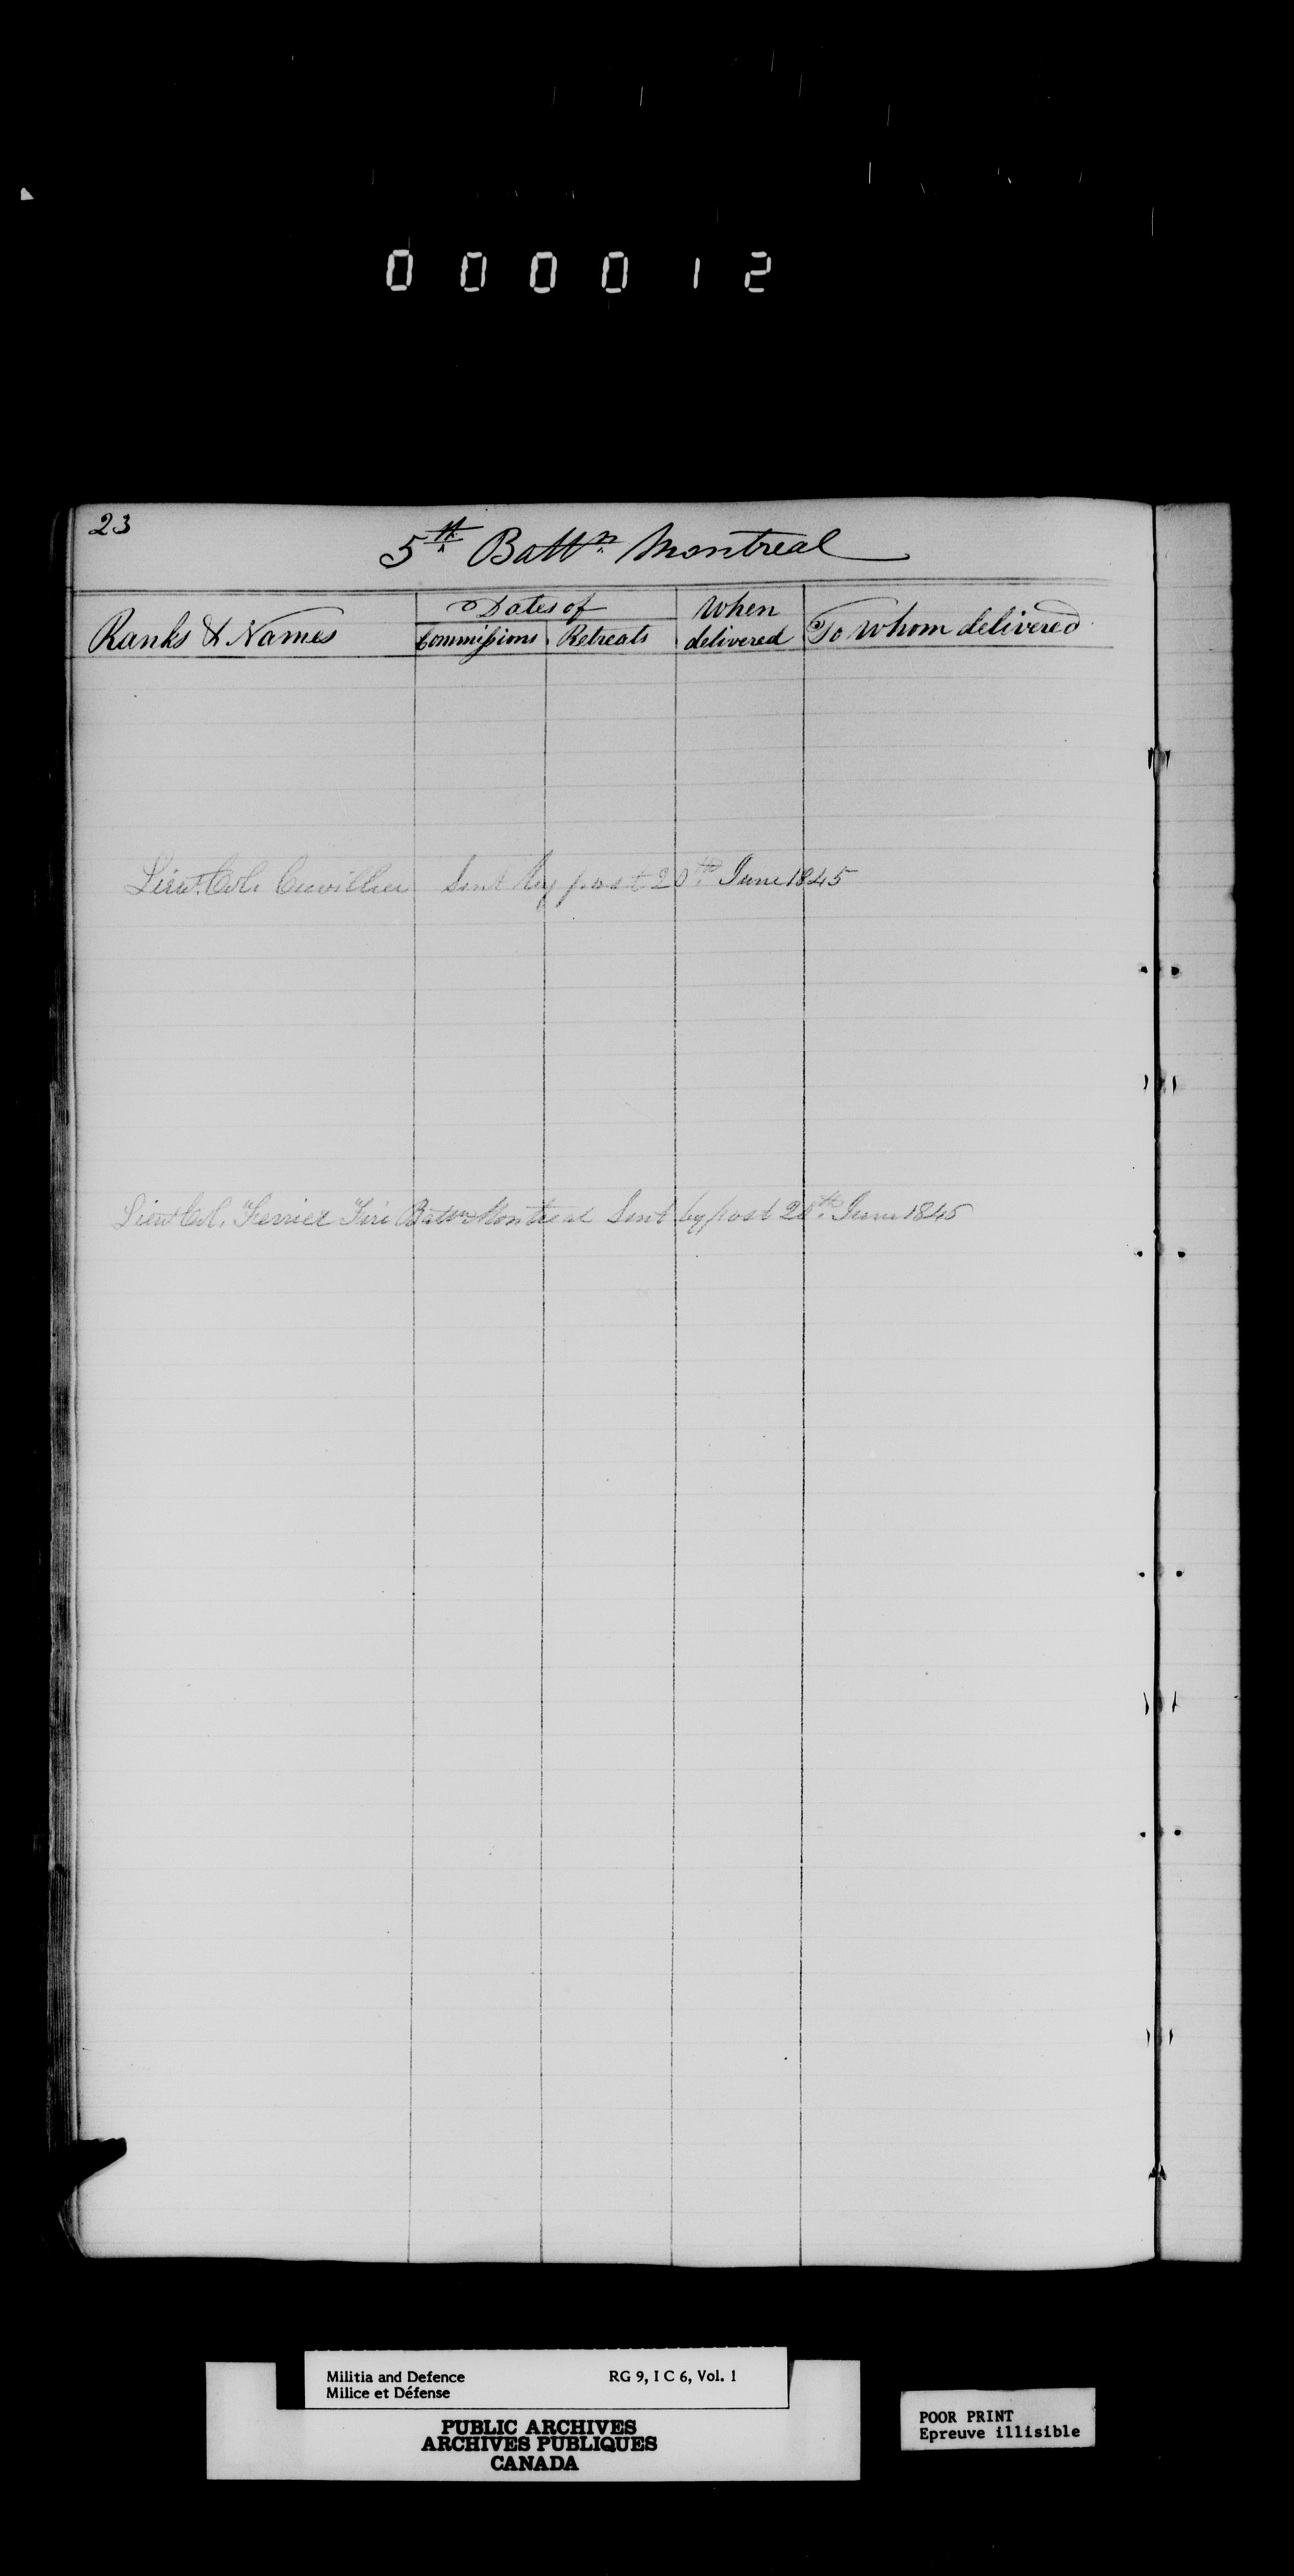 000012
23
5th Battn Montreal
Ranks & Names
Dates of
Commissions
Retreats
When delivered
To Whom delivered
Lieut. Col. Cuvillier Sent by post 20th June 1845
Lieut Col. Ferrier Fire Battn Montreal Sent by post 20th June 1845
Militia and Defence RG 9, I C 6, Vol. 1
Milice et Défense
PUBLIC ARCHIVES
ARCHIVES PUBLIQUES
CANADA
POOR PRINT
Epreuve illisible